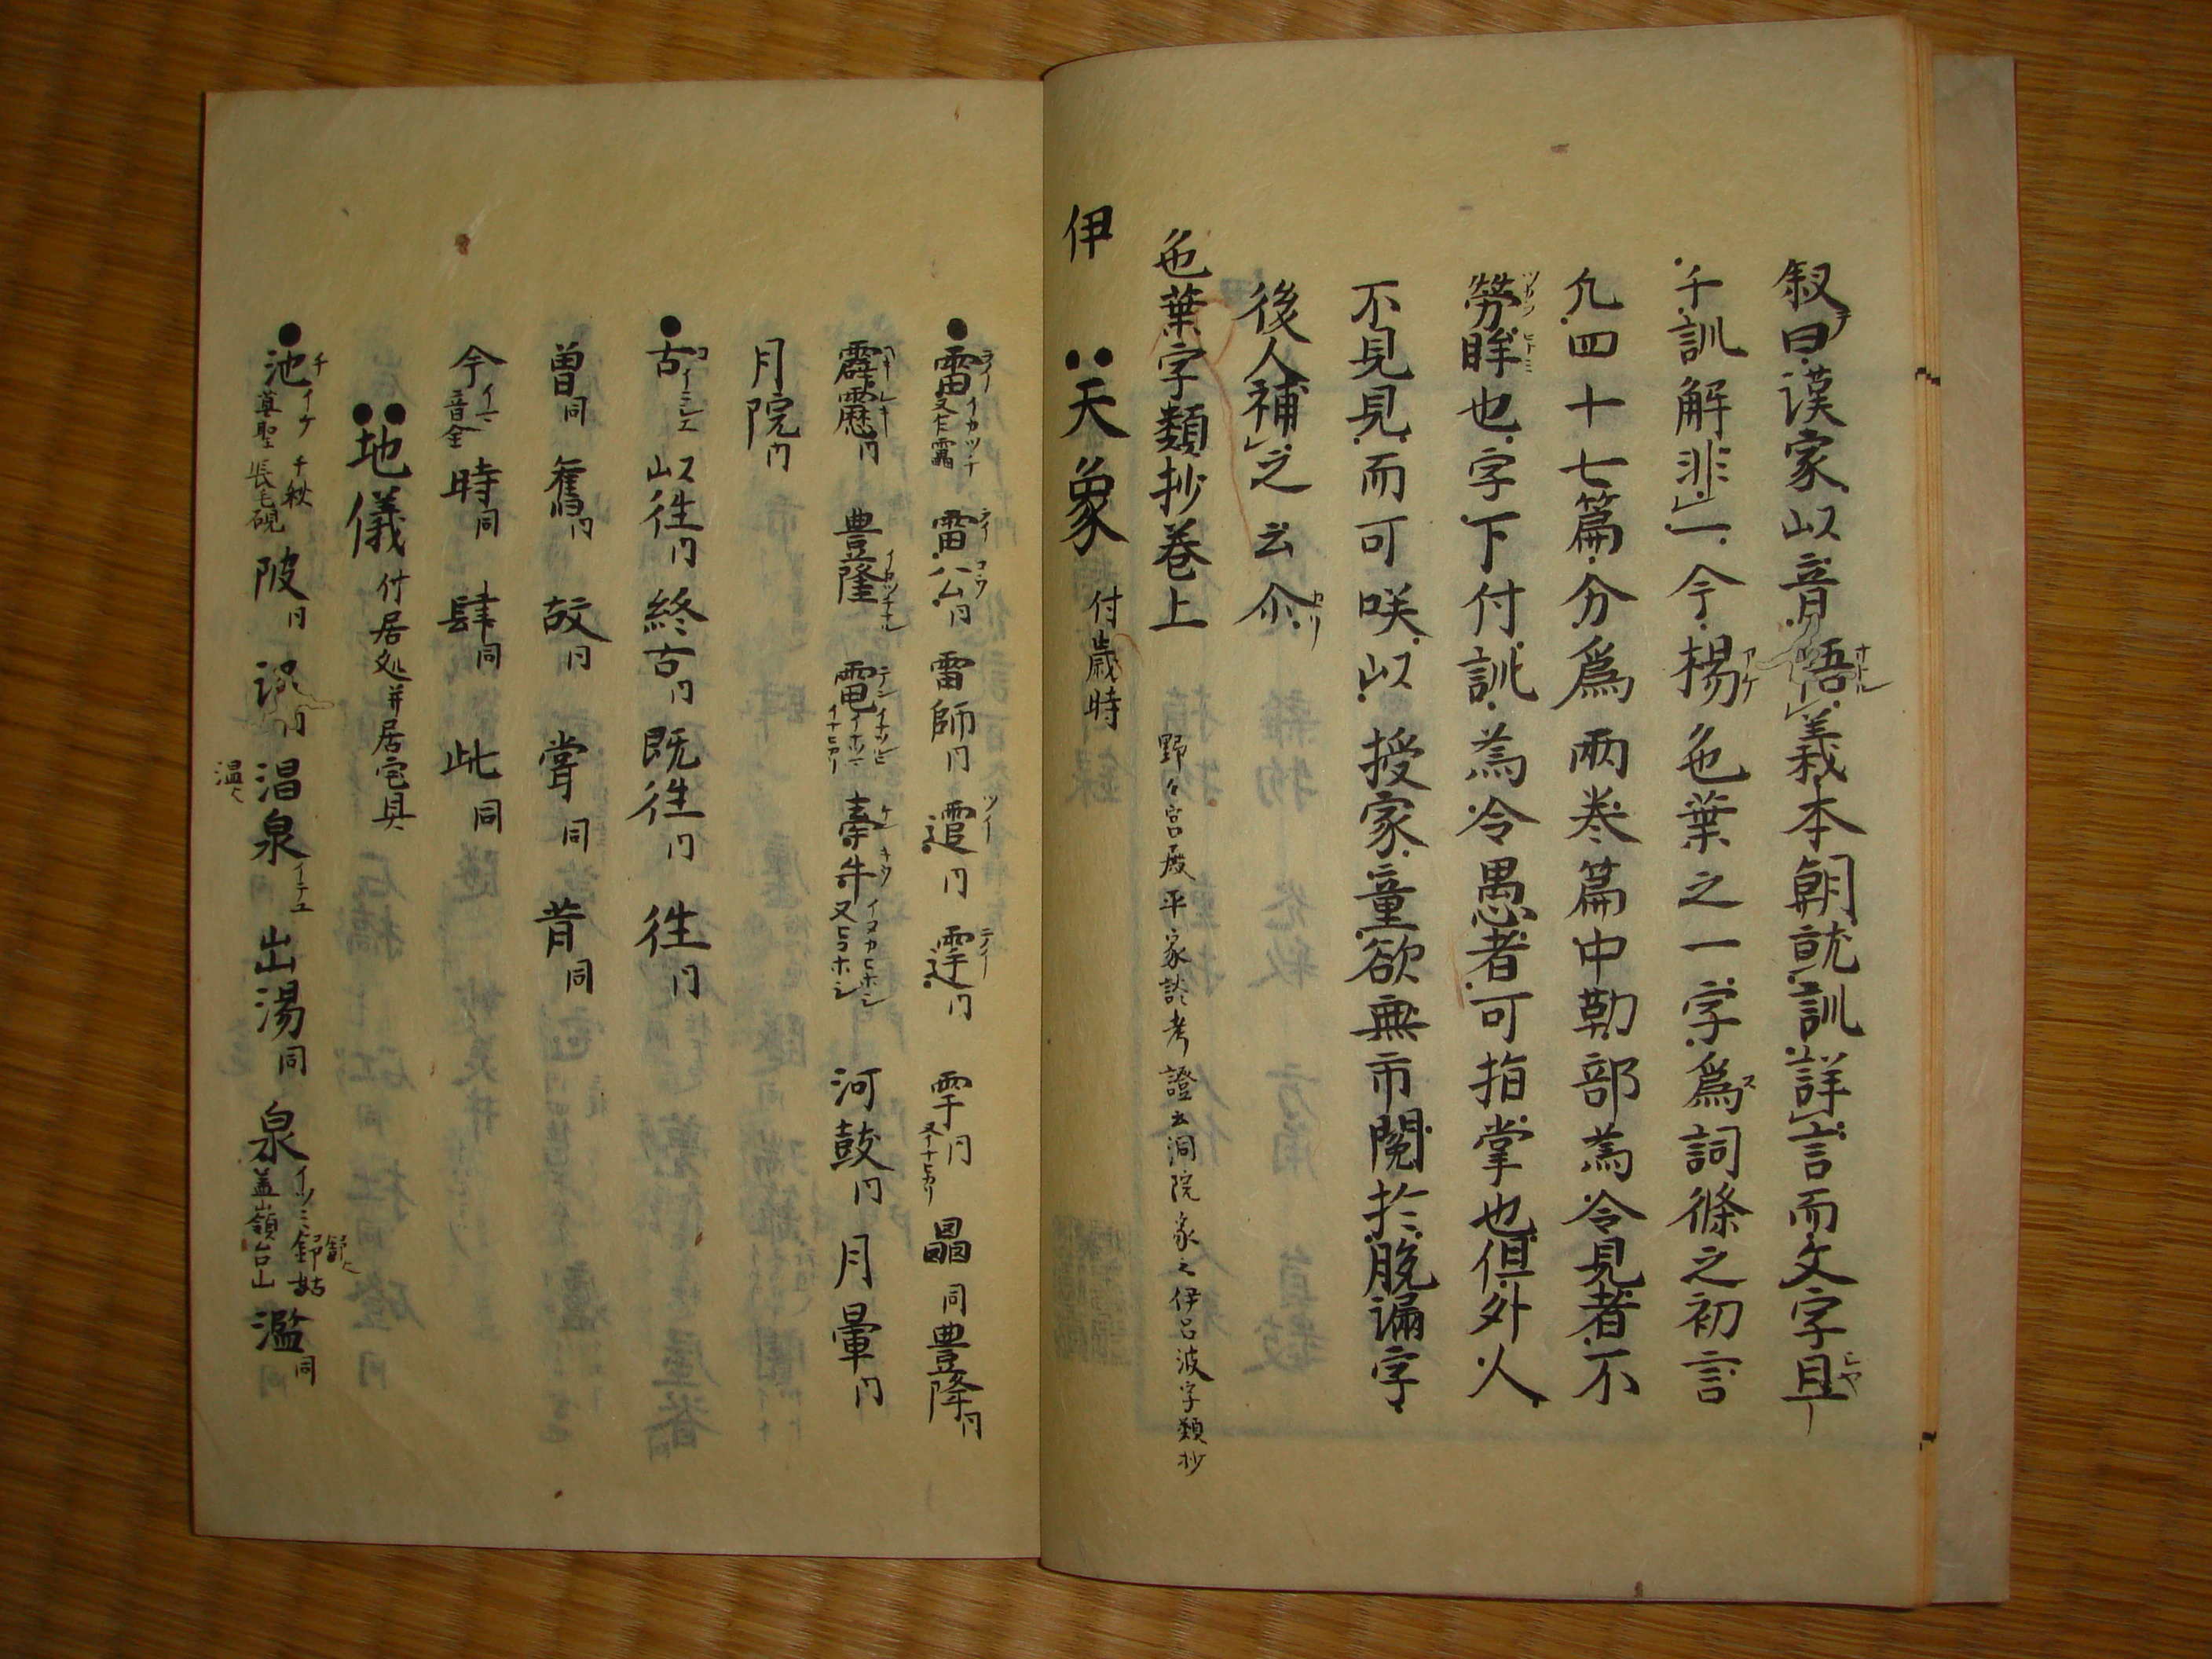 叙曰漢家以音悟義本朝就訓詳言而文字且
千訓解非一今楊色葉之一字爲詞條之初言
凢四十七篇分爲兩巻篇中勒部為令見者不
勞眸也字下付訓為令愚者可指掌也但外人
不見見而可咲以授家童欲無市閲於脱漏字
後人補之云尒
色葉字類抄巻上 野々宮殿平家談考證云洞院家之伊呂波字類抄
伊 天象 付歳時
雷 ライ イカツチ 又乍靁 雷公同 雷師同 同 同 雩同 畾同 豊隆同
霹靂同 豊隆 電 イナヒカリ 牽牛 ケンキウ イヌカヒホシ 又ヒコホシ 河鼓同 月暈同
月院同
古 コ イニシエ 以徃同 終古同 既徃同 徃同
曽同 舊同 故同 嘗同 昔同
今 イマ 音金 時同 肆同 此同
地儀 付居処并居宅具
池 チ イケ 千秋 草聖 張毛硯 陂同 泥同 温泉 イテユ 出湯同 泉 イツミ 舒姑 蓋嶺台山 濫同